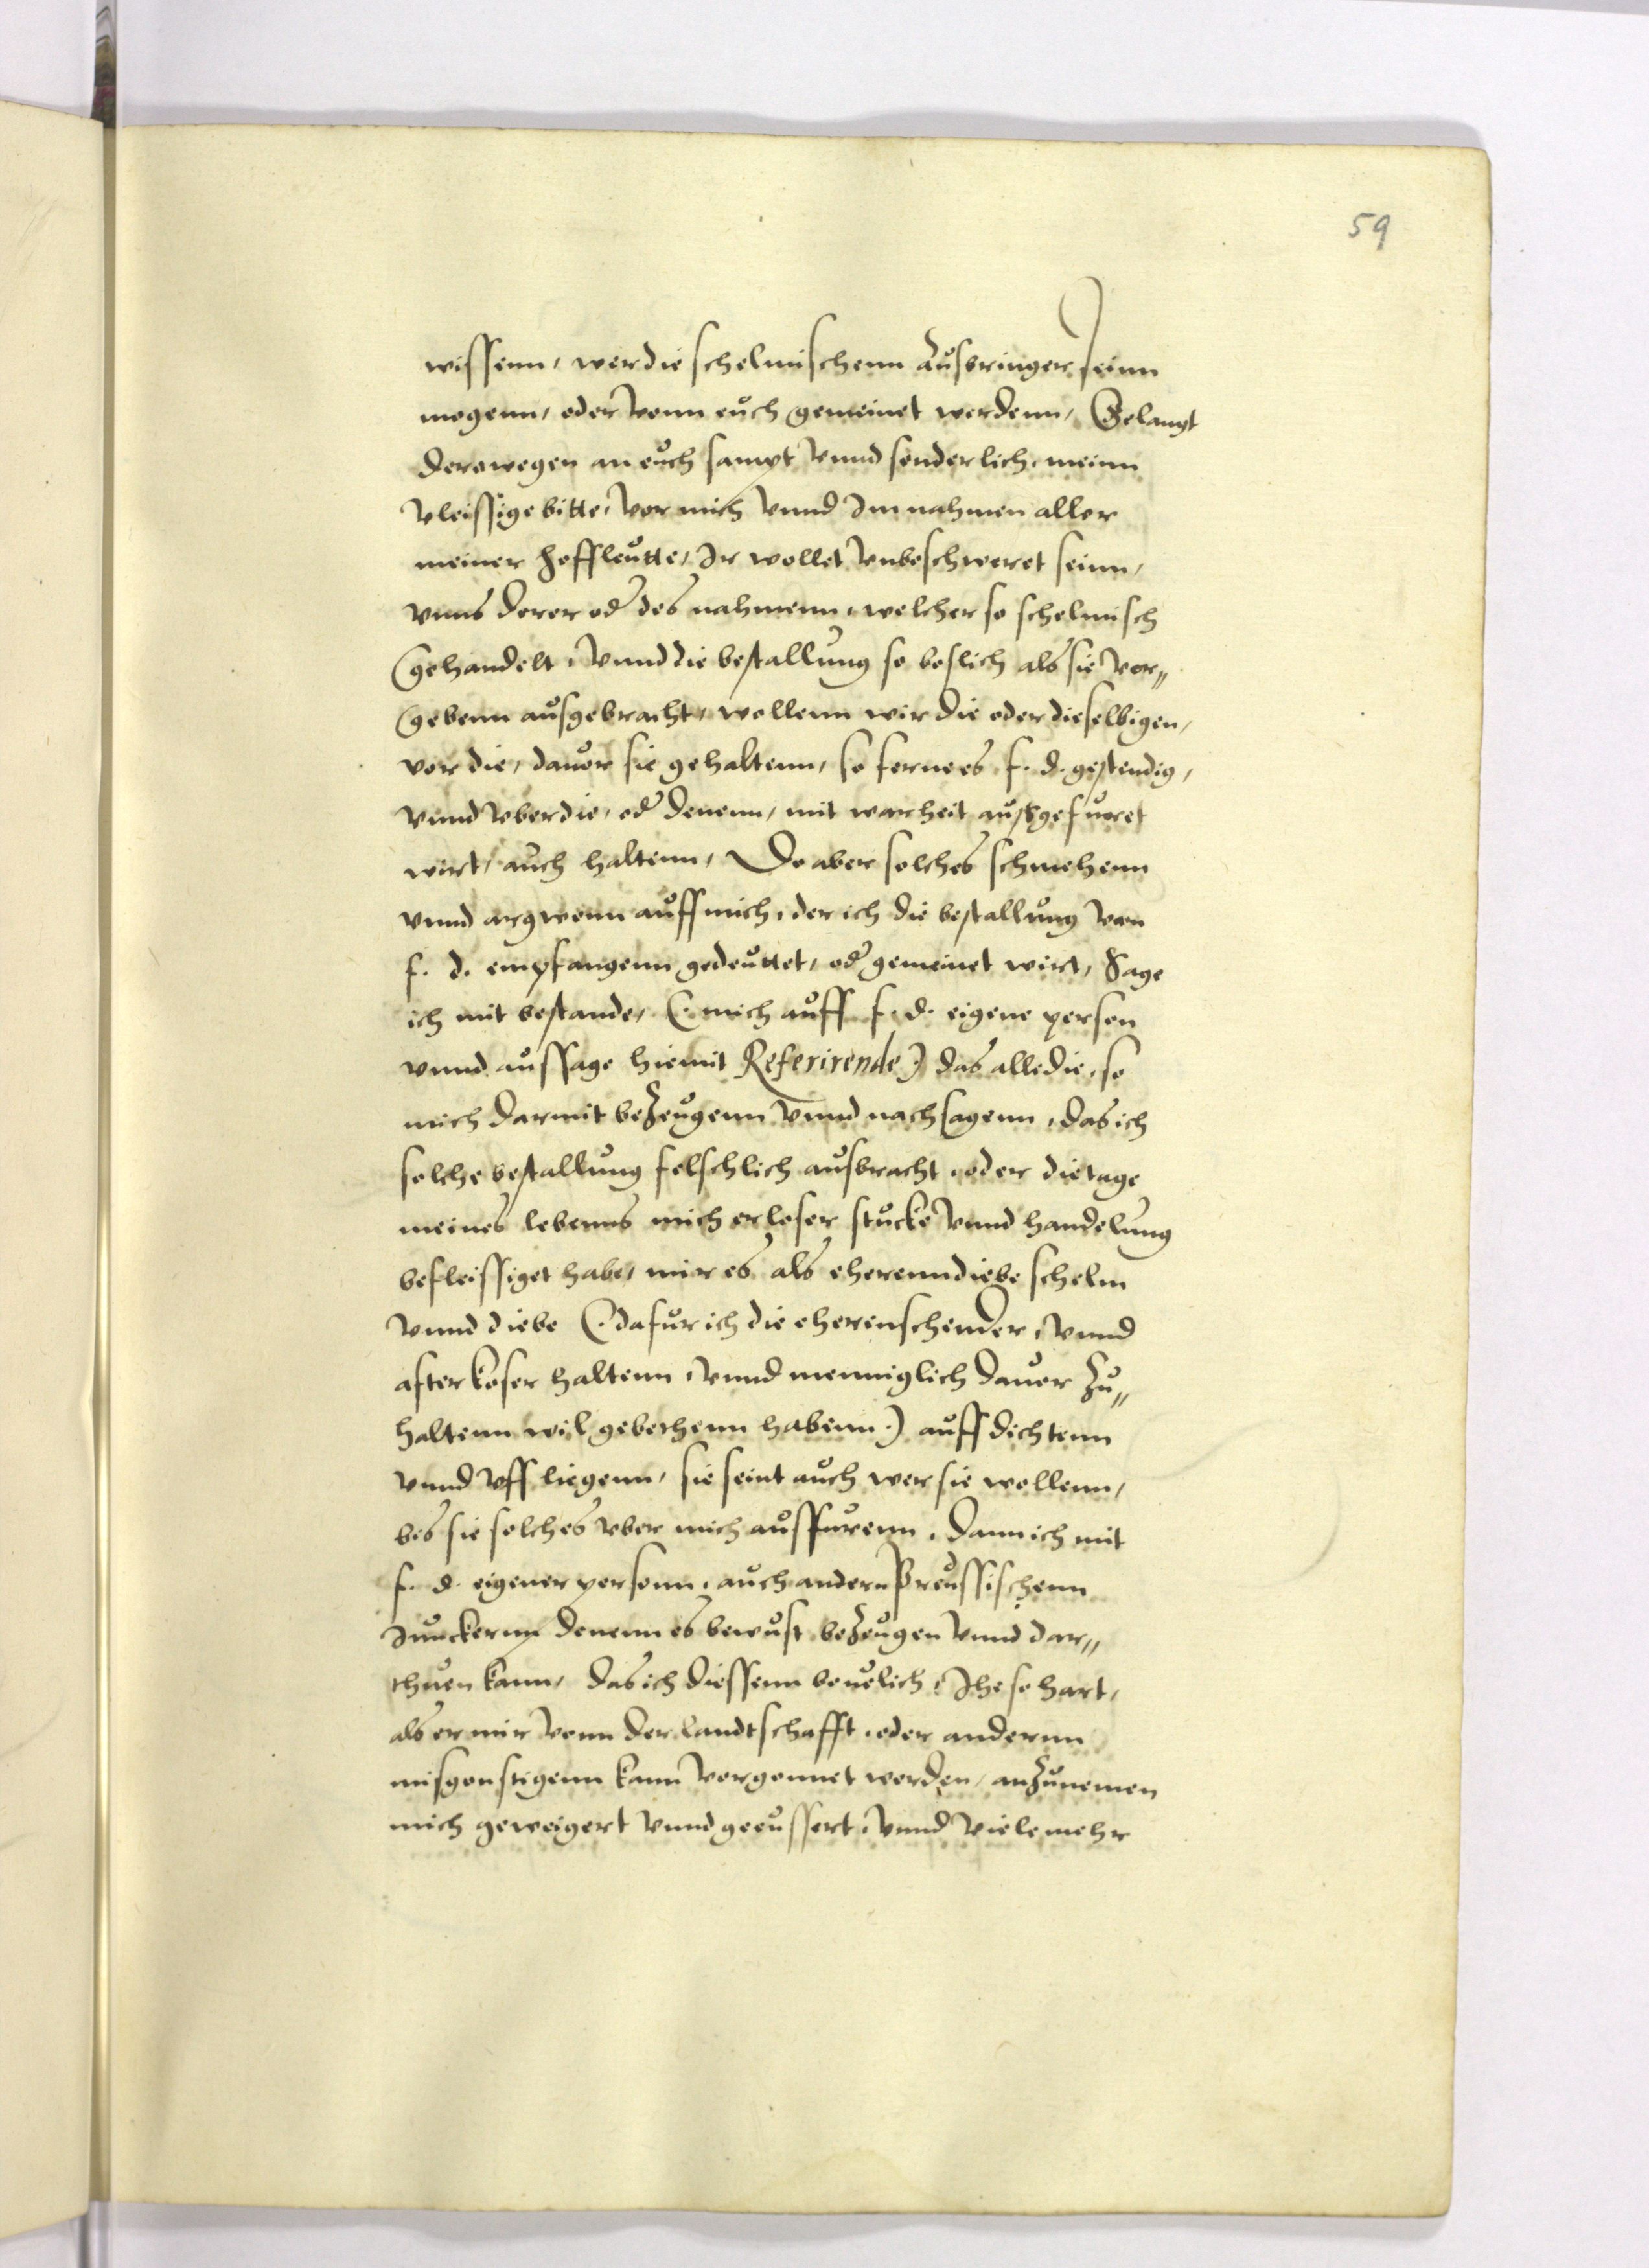 59
wissenn, wer die schelmischenn Ausbringer seinn
mogenn, oder vonn euch gemeinet werdenn, Gelangt
derowegen an euch sampt vnnd sonderlich, meinn
vleissige bitte, vor mich vnnd Im nahmen aller
meiner hoffleutte, Ir wollet vnbeschweret seinn,
vnns derer od des nahmenn, welcher so schelmisch
gehandelt, vnnd die bestallung so boslich als sie vor„
gebenn ausgebracht, wollenn wir die oder dieselbigen,
vor die, dauor sie gehaltenn, so ferne es f. d. gestendig,
vnnd vber die, od denenn, mit warheit außgefuret
wirt, auch haltenn, Do aber solches schmehenn
vnnd argwonn auff mich, der ich die bestallung von
f. d. empfangenn gedeuttet, od gemeinet wirt, Sage
ich mit bestande, (. mich auff f. d. eigene person
vnnd aussage hiemit Referirende) das alle die, so
mich darmit bezeugenn vnnd nachsagenn, das ich
solche bestallung felschlich ausbracht, oder die tage
meines lebenns mich erloser stucke vnnd handelung
befleissiget habe, mir es als eherenndiebe schelm
vnnd diebe (. dafur ich die eherenschender, vnnd
afterkoser haltenn, vnnd menniglich dauor zu„
haltenn wil gebethenn habenn .) auff dichtenn
vnnd vff liegenn, sie seint auch wer sie wollenn,
bis sie solches vber mich ausfurenn, Dann ich mit
f. d. eigener personn, auch andern Preussischenn
Junckernn denenn es bewust bezeugen vnnd dar„
thuen kann, das ich diessenn beuelich, Ihe so hart,
als er mir vonn der landtschafft, oder anderenn
misgonstigenn kann vorgonnet werden, anzunemen
mich geweigert vnnd geeussert, vnnd viele mehr